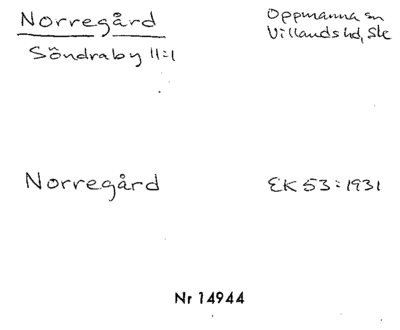 Norregård
Oppmanna sn
Villands hd, Ske
Söndraby 11:1
Norregård
EK 53:1931
Nr 14944